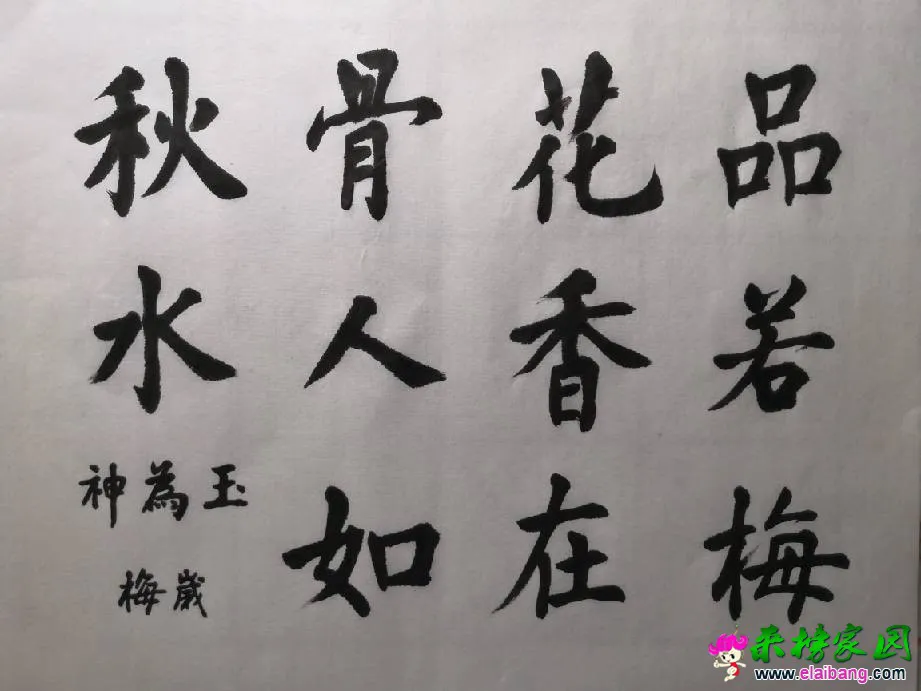 品若梅
花香在
骨人如
秋水
玉為神
歲梅
来榜家园
www.elaibang.com